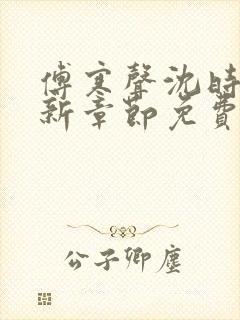 傅寒聲沈時
新章節免費
公子卿塵